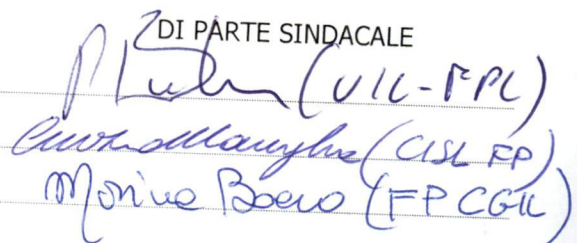 DI PARTE SINDACALE
(UIL-FPL)
(CISL FP)
Monica Boero (FP CGIL)